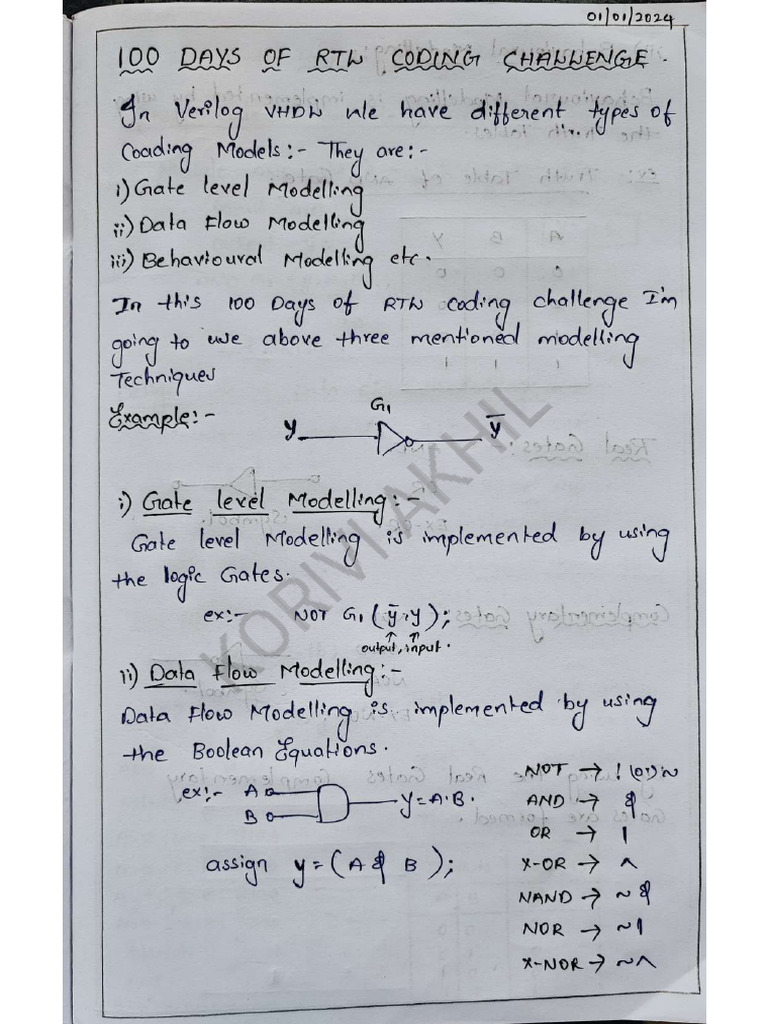 01/01/2024
100 DAYS OF RTL CODING CHALLENGE.
In Verilog VHDL We have different types of
Coading Models:- They are:-
i) Gate level Modelling
ii) Data Flow Modelling
iii) Behavioural Modelling etc.
In this 100 Days of RTL coding challenge I'm
going to use above three mentioned modelling
Techniques
Example:-
G1
y ȳ
i) Gate level Modelling:-
Gate level Modelling is implemented by using
the logic Gates.
ex:- NOT G1 (ȳ,y);
output, input.
ii) Data Flow Modelling:-
Data Flow Modelling is implemented by using
the Boolean Equations.
ex:- A
B
y = A·B.
assign y = (A & B);
NOT → ! (or) ~
AND → &
OR → |
X-OR → ^
NAND → ~&
NOR → ~|
X-NOR → ~^
KORIVI AKHIL